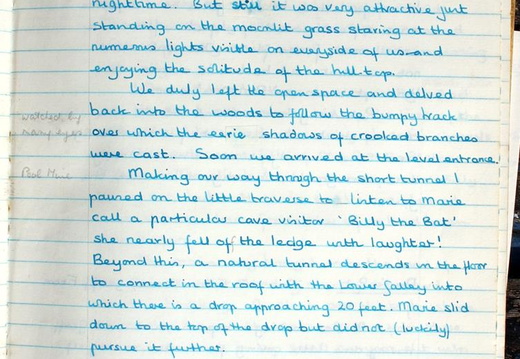 nighttime. But still it was very attractive just
standing on the moonlit grass staring at the
numerous lights visible on everyside of us and
enjoying the solitude of the hill top.
We duly left the open space and delved
back into the woods to follow the bumpy track
watched by
many eyes
over which the eerie shadows of crooked branches
were cast. Soon we arrived at the level entrance.
Making our way through the short tunnel I
paused on the little traverse to listen to Marie
call a particular cave visitor 'Billy the Bat'
she nearly fell of the ledge with laughter!
Beyond this, a natural tunnel descends in the floor
to connect in the roof with the Lower Galley into
which there is a drop approaching 20 feet. Marie slid
down to the top of the drop but did not (luckily)
pursue it further.